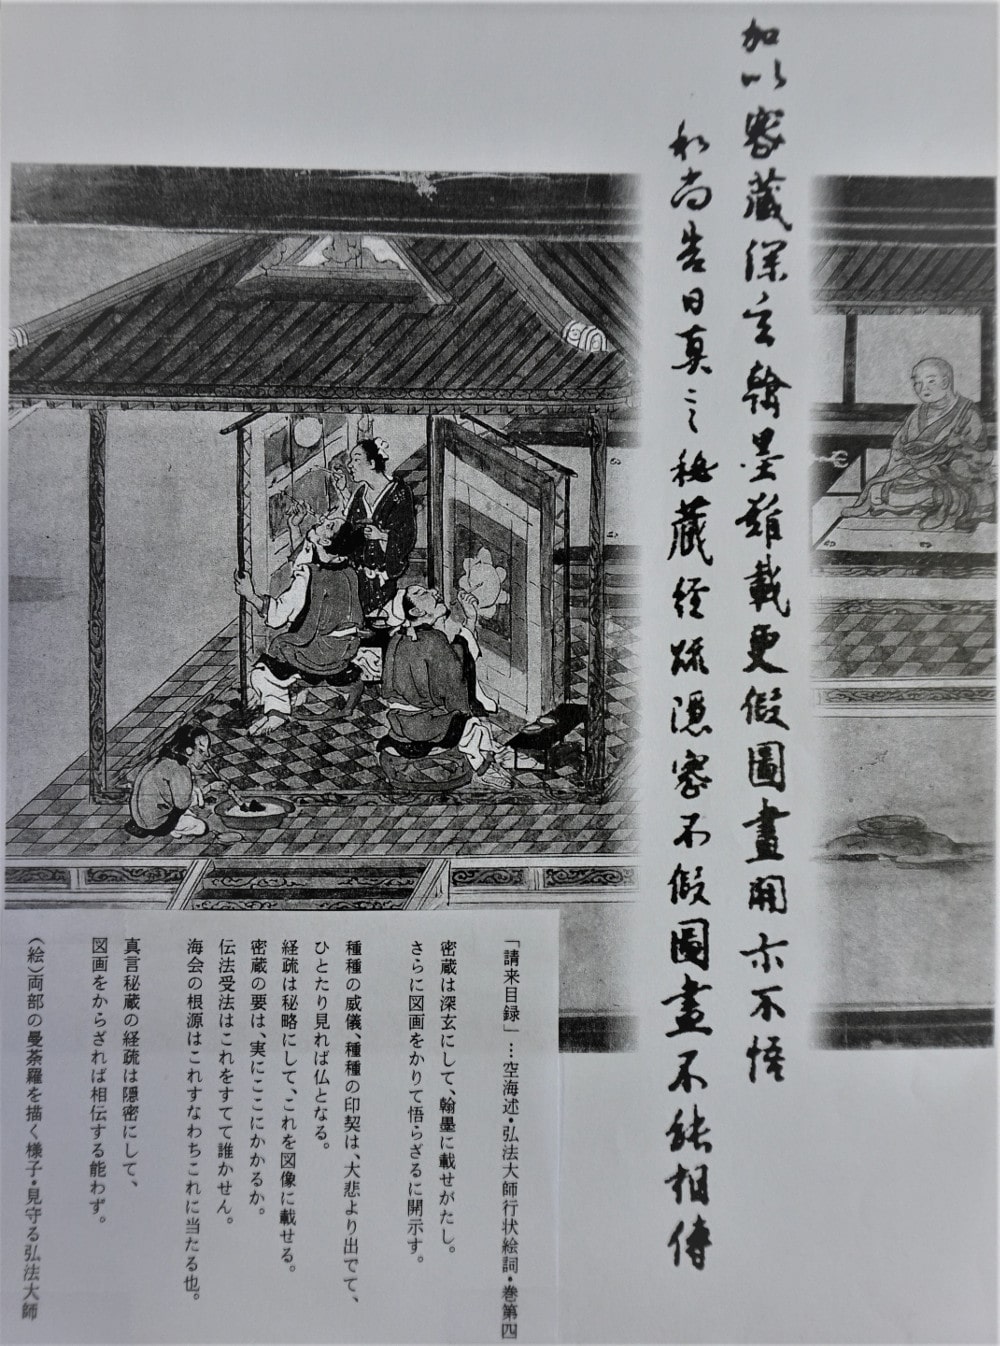 加以密蔵深玄翰墨難載更假圖畫開示不悟
和尚告曰真言秘蔵経疏隠密不假圖畫不能相傳
「請来目録」…空海述・弘法大師行状絵詞・巻第四
密蔵は深玄にして、翰墨に載せがたし。
さらに図画をかりて悟らざるに開示す。
種種の威儀、種種の印契は、大悲より出でて、
ひとたり見れば仏となる。
経疏は秘略にして、これを図像に載せる。
密蔵の要は、実にここにかかるか。
伝法受法はこれをすてて誰かせん。
海会の根源はこれすなわちこれに当たる也。
真言秘蔵の経疏は隠密にして、
図画をからざれば相伝する能わず。
(絵)両部の曼荼羅を描く様子・見守る弘法大師